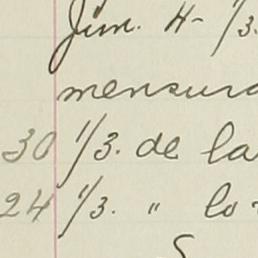 Jun. 4- 1/3.
mensura
30 1/3. de la
24 1/3. " lo